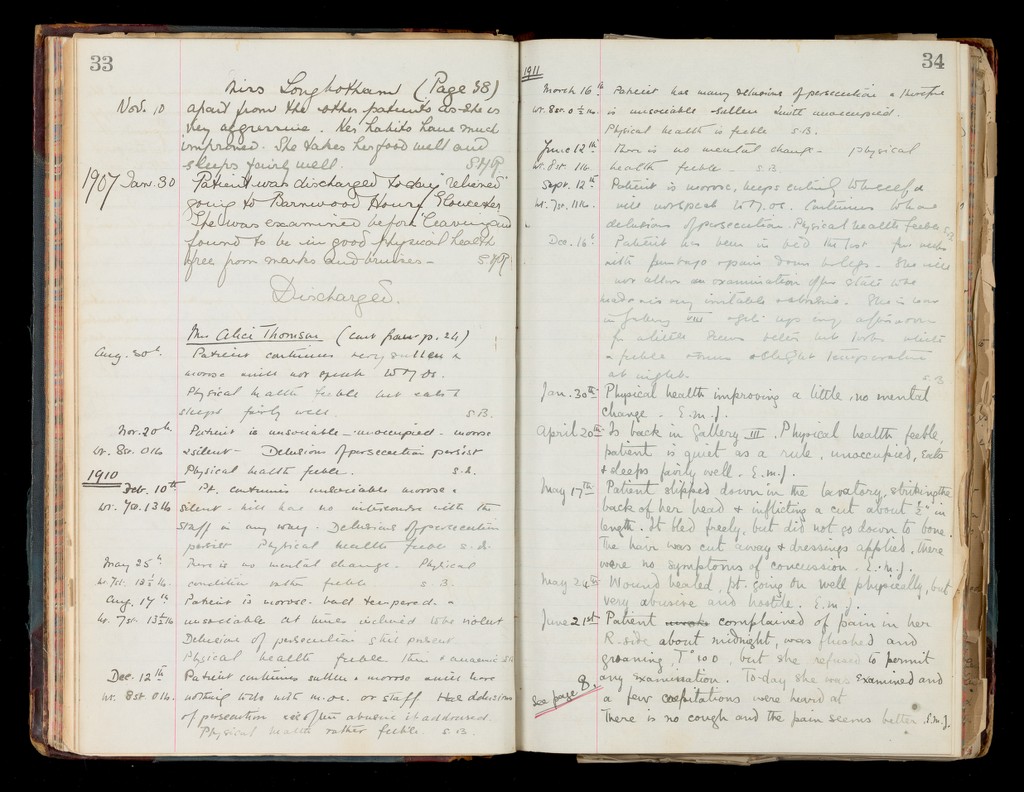 33
Miss Longbotham (Page 38)
Nov. 10 apart from the other patients as she is
very aggressive. Her habits have much
improved. She takes her food well and
sleeps fairly well.
1907 Jan. 30 Patient was discharged today "relieved"
going to Barnwood House, Gloucester
She was examined before leaving and
found to be in good physical health
free from marks and bruises -
Discharged.
Mrs Alice Thomson (cont from p. 24)
Aug. 30th Patient continues very sullen &
morose & will not speak to M.Os.
Physical health feeble but eats &
sleeps fairly well. S.B.
Nov. 20th Patient is unsociable - unoccupied - morose
Wt. 8st. 0 lb & silent - Delusions of persecution persist
Physical health feeble. S.B.
1910
Feb. 10th Pt. continues unsociable morose &
Wt. 7st. 13 lb silent - will have no intercourse with the
staff in any way. Delusions of persecution
persist Physical health feeble S.B.
May 25th There is no mental change. Physical
Wt. 7st. 13½ lb. condition rather feeble. S.B.
Aug. 17th Patient is morose - bad tempered - &
Wt. 7st. 13½ lb unsociable at times inclined to be violent
Delusions of persecution still present
Physical health feeble thin & anaemic S.B.
Dec. 12th Patient continues sullen & morose & will have
Wt. 8st 0 lb. nothing to do with M.Os. or staff. Has delusions
of persecution & is often abusive if addressed.
Physical health rather feeble. S.B.
34
1911
March 16th Patient has many delusions of persecution & therefore
Wt. 8st. 0½ lb. is unsociable sullen & unoccupied.
Physical health is feeble S.B.
June 12th There is no mental change - physical
Wt. 8st. 1 lb. health feeble - S.B.
Sept. 12th Patient is morose, keeps entirely to herself &
Wt. 7st. 11 lb. will not speak to M.Os. Continues to have
delusions of persecution. Physical health feeble S.B.
Dec. 16th Patient has been in bed the last few weeks
with lumbago & pain down her legs - She will
not allow an examination of her state to be
made & is very irritable & abusive. She is now
in Gallery VIII & gets up every afternoon
for a little. Seems better but looks white
& feeble & runs a slight temperature
at night. S.B
Jan. 30th Physical health improving a little, no mental
change. E.M.J.
April 20th Is back in Gallery III. Physical health feeble,
patient is quiet as a rule, unoccupied, eats
& sleeps fairly well. E.M.J.
May 17th Patient slipped down in the lavatory, striking the
back of her head & inflicting a cut about ½" in
length. It bled freely, but did not go down to bone.
The hair was cut away & dressings applied. There
were no symptoms of concussion. E.M.J.
May 24th Wound healed, pt. going on well physically, but
very abusive and hostile. E.M.J.
June 21st Patient complained of pain in her
R. side about midnight, was flushed and
groaning, T° 100, but she refused to permit
any examination. To-day she was examined and
see page 8. a few crepitations were heard at
There is no cough and the pain seems better. E.M.J.